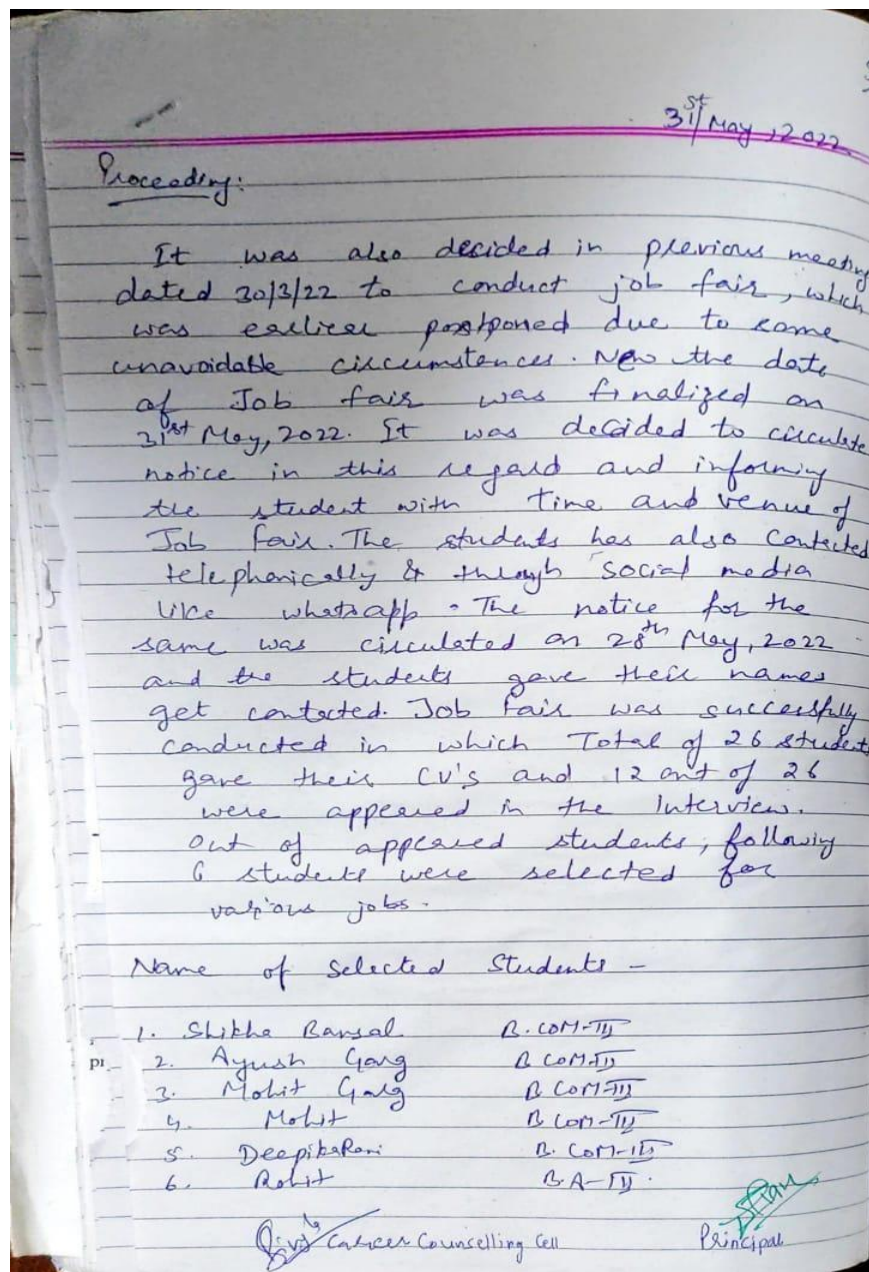 31st May, 2022
Proceeding:
It was also decided in previous meeting
dated 30/3/22 to conduct job fair, which
was earlier postponed due to some
unavoidable circumstances. Now the date
of Job fair was finalized on
31st May, 2022. It was decided to circulate
notice in this regard and informing
the student with time and venue of
Job fair. The students has also contacted
telephonically & through social media
like whatsapp. The notice for the
same was circulated on 28th May, 2022
and the students gave their names
get contacted. Job fair was successfully
conducted in which Total of 26 students
gave their CV's and 12 out of 26
were appeared in the Interview.
Out of appeared students, following
6 students were selected for
various jobs.
Name of Selected Students -
1. Shikha Bansal B.COM-III
pr
2. Ayush Garg B COM-III
3. Mohit Garg B COM-III
4. Mohit B COM-III
5. Deepika Rani B. COM-III
6. Rohit B.A-III.
Career Counselling Cell Principal